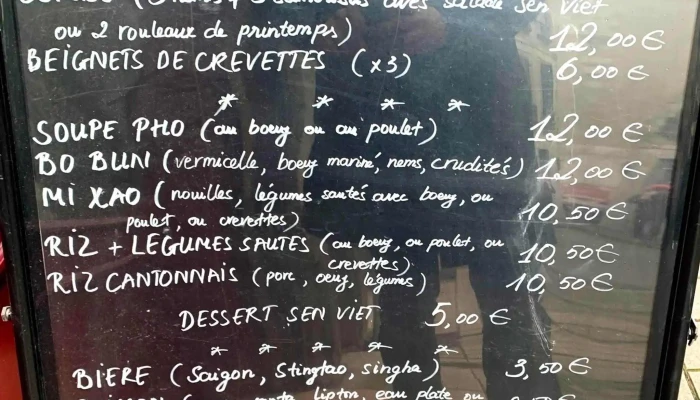 avec salade Sen Viet
ou 2 rouleaux de printemps) 12,00€
BEIGNETS DE CREVETTES (x3) 6,00€
* * * *
SOUPE PHO (au boeuf ou au poulet) 12,00€
BO BUN (vermicelle, boeuf mariné, nems, crudités) 12,00€
MI XAO (nouilles, légumes sautés avec boeuf, ou
poulet, ou crevettes) 10,50€
RIZ + LEGUMES SAUTES (au boeuf, ou poulet, ou
crevettes) 10,50€
RIZ CANTONNAIS (porc, oeuf, légumes) 10,50€
DESSERT SEN VIET 5,00€
* * * * *
BIERE (Saigon, Stingtao, singha) 3,50€
lipton, eau plate ou